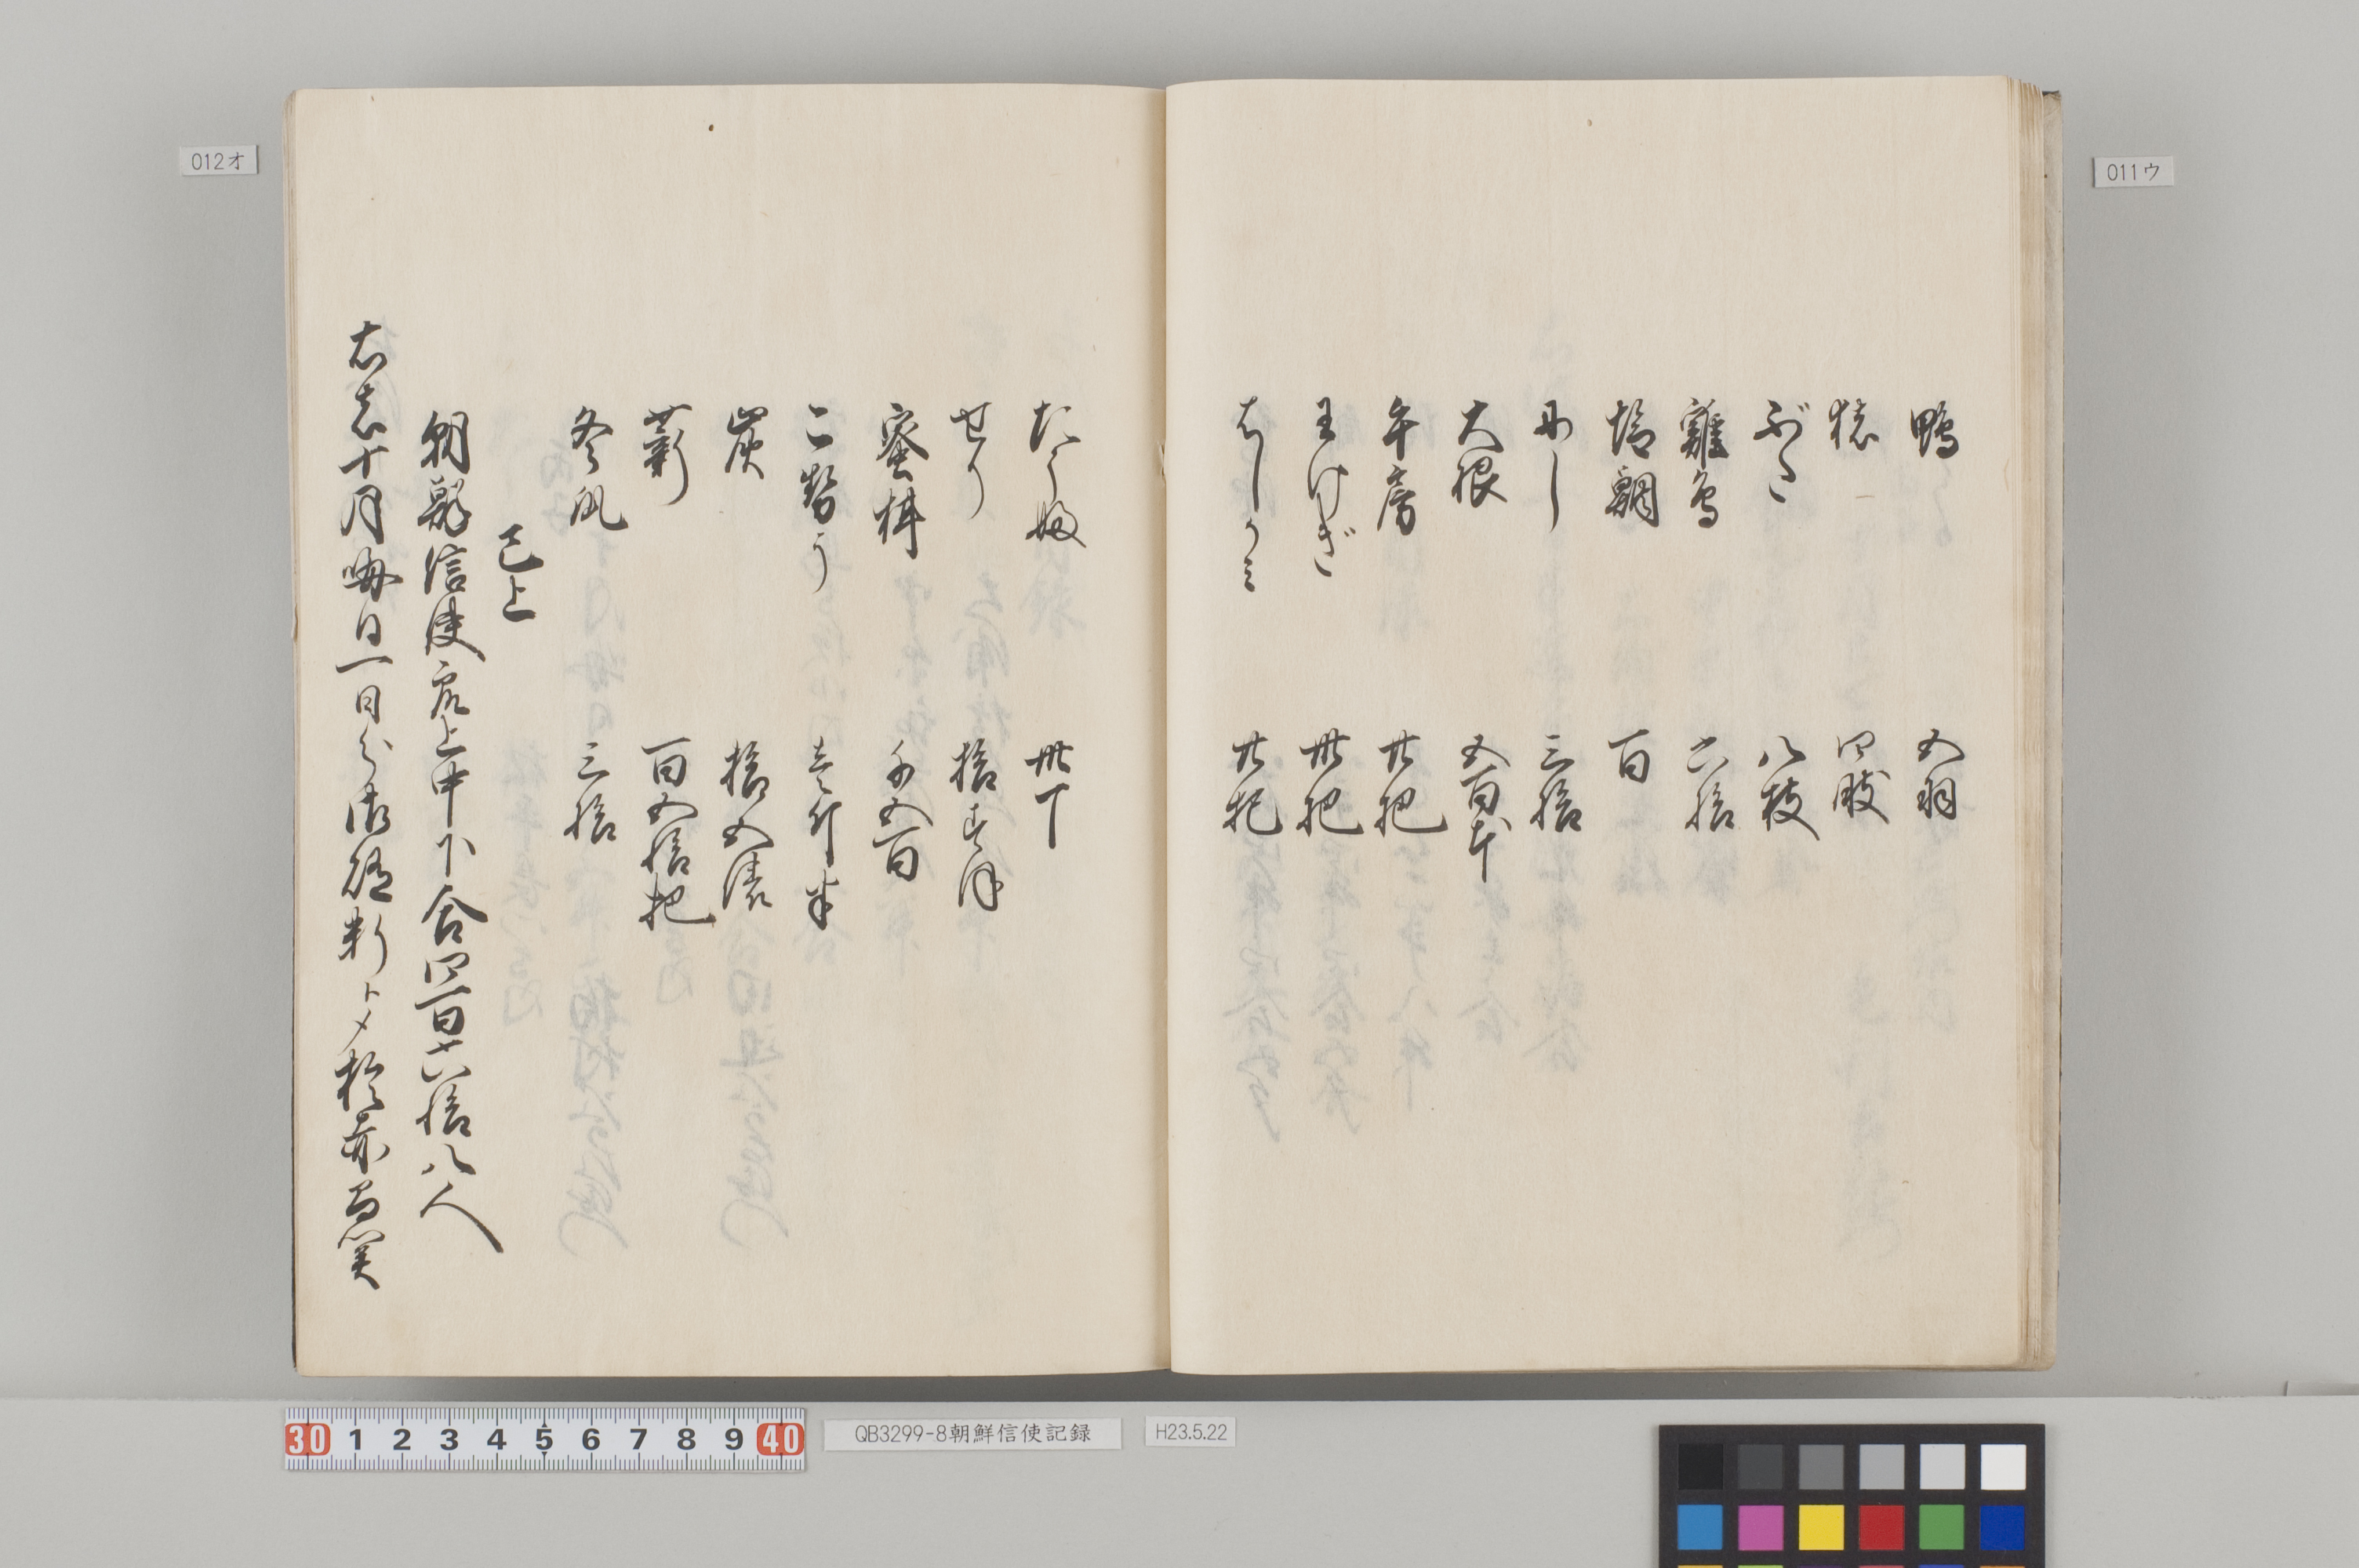 011ウ
鴨 五羽
猪 四股
ぶた 八枝
雞鳥 六拾
塩鯛 百
にし 三拾
大根 五百本
午房 廿把
わけぎ 卅把
はしかミ 廿把
012オ
たうふ 卅丁
せり 拾
蜜柑 千五百
こせう 壱斤半
炭 拾五俵
薪 百五拾把
冬瓜 三拾
已上
朝鮮信使官上中下合四百六拾八人
右者十月晦日一日分御賄料トメ於赤間関
30 1 2 3 4 5 6 7 8 9 40
QB3299-8朝鮮信使記録
H23.5.22